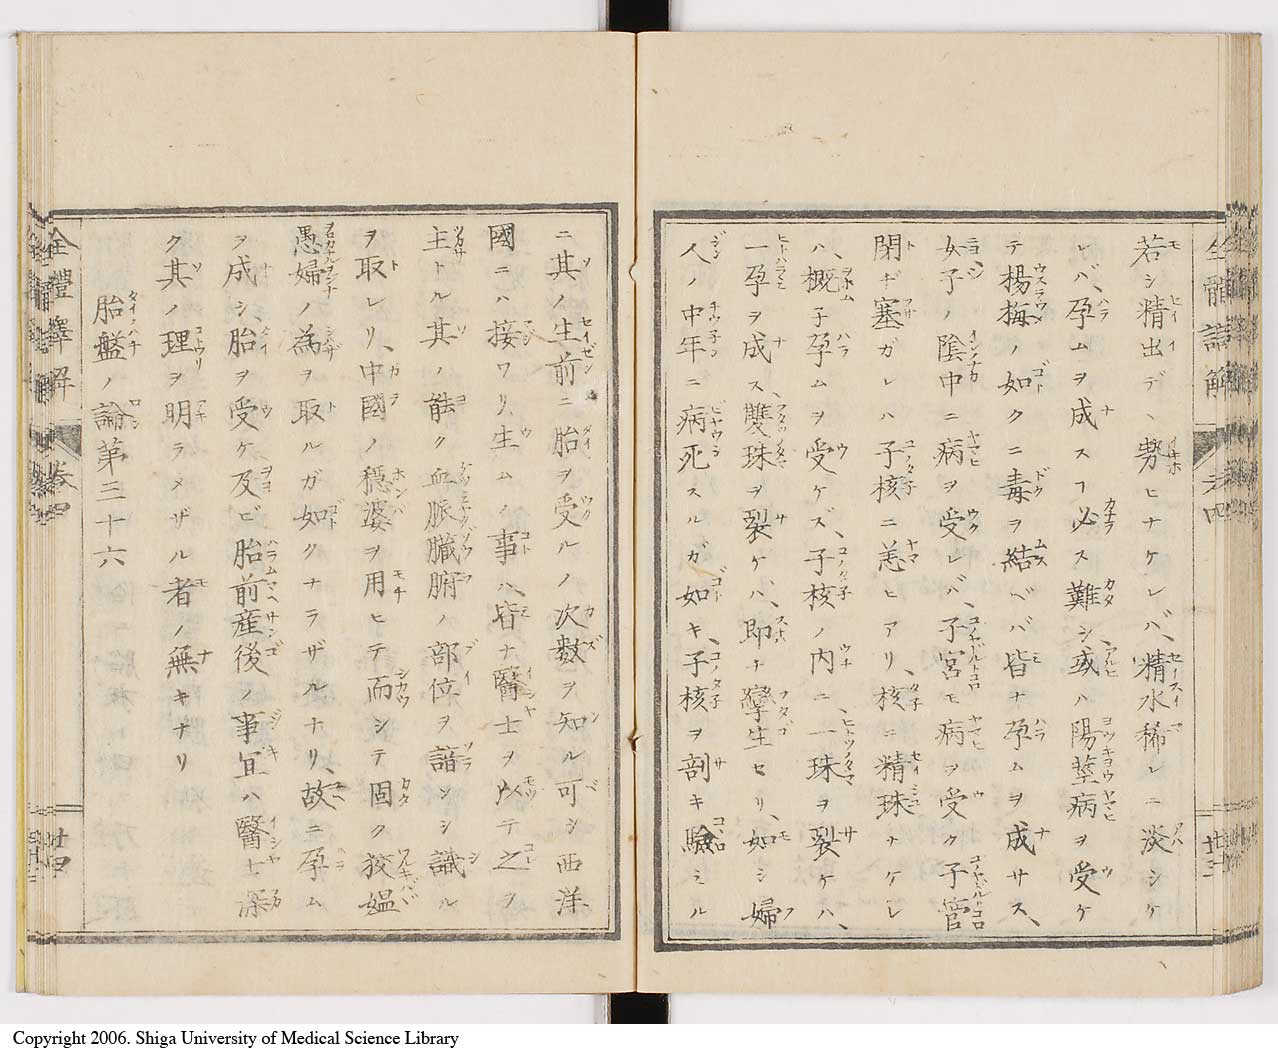 若シ精出デ、勢ヒナケレバ、精水稀レニ淡シケ
レバ、孕ムヲ成スヿ必ス難シ、或ハ陽莖病ヲ受ケ
テ楊梅ノ如クニ毒ヲ結ベバ皆ナ孕ムヲ成サス、
女子ノ陰中ニ病ヲ受レバ、子宮モ病ヲ受ク子宮
閉ギ塞ガレハ子核ニ恙ヒアリ、核ニ精珠ナケレ
ハ、概子孕ムヲ受ケズ、子核ノ内ニ、一珠ヲ裂ケハ、
一孕ヲ成ス、雙珠ヲ裂ケハ、即チ孿生セリ、如シ婦
人ノ中年ニ病死スルガ如キ、子核ヲ剖キ驗ミル
ニ其ノ生前ニ胎ヲ受ルノ次数ヲ知ル可シ西洋
國ニハ接ワリ、生ムノ事ハ、皆ナ醫士ヲ以テ之ヲ
主トル其ノ能ク血脈臓腑ノ部位ヲ諳ンシ識ル
ヲ取レリ、中國ノ穏婆ヲ用ヒテ而シテ固ク狡媼
愚婦ノ為ヲ取ルガ如クナラザルナリ、故ニ孕ム
ヲ成シ、胎ヲ受ケ及ビ胎前産後ノ事宜ハ醫士深
ク其ノ理ヲ明ラメザル者ノ無キナリ
胎盤ノ論第三十六
全體譯解
卷四
廿四
Copyright 2006. Shiga University of Medical Science Library